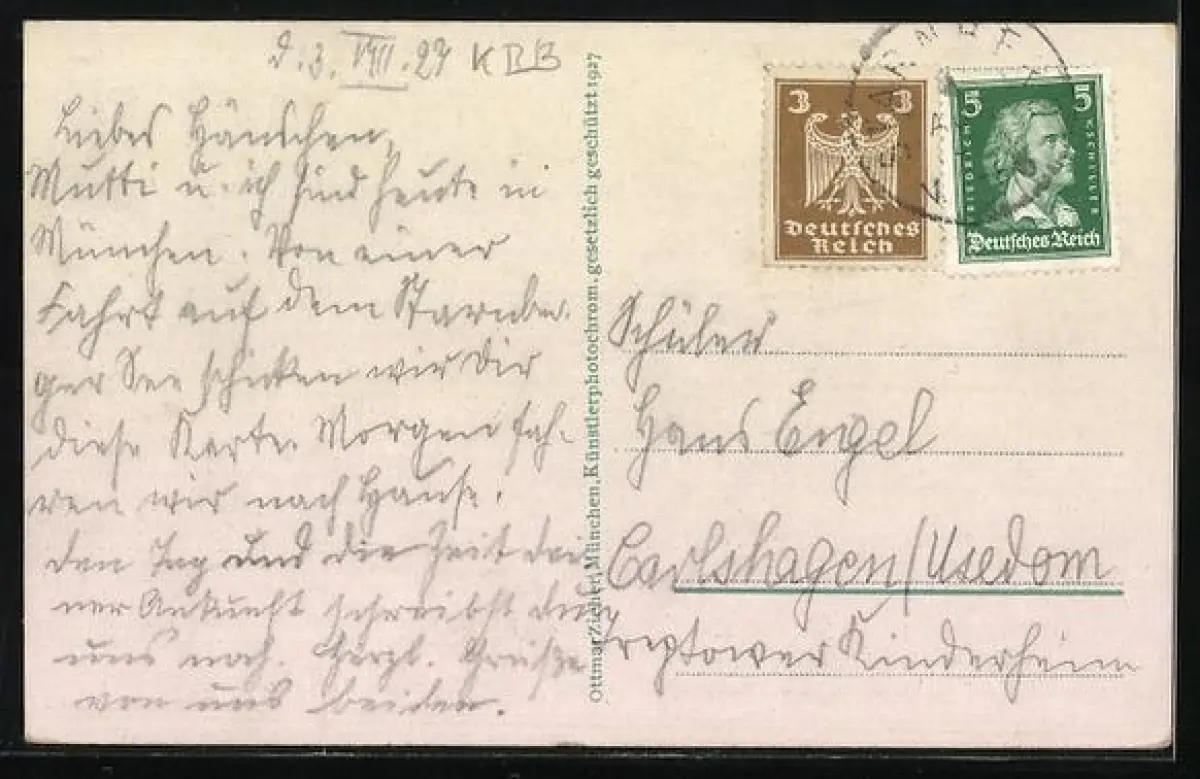 d. 3. VIII. 27
Liebes Hänschen,
Mutti u. ich sind heute in
München. Von einer
Fahrt auf dem Starnber-
ger See schicken wir Dir
diese Karte. Morgen fah-
ren wir nach Hause.
den Tag und die Zeit dei-
ner Ankunft schreibst du
uns noch. Herzl. Grüße
von uns beiden.
Ottmar Zieher, München, Künstlerphotochrom. gesetzlich geschützt 1927
3 3
Deutsches
Reich
5 5
FRIEDRICH V SCHILLER
Deutsches Reich
Schüler
Hans Engel
Carlshagen/Usedom
Treptower Kinderheim